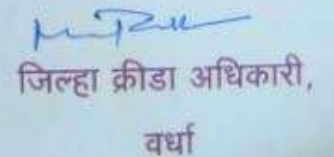 जिल्हा क्रीडा अधिकारी,
वर्धा